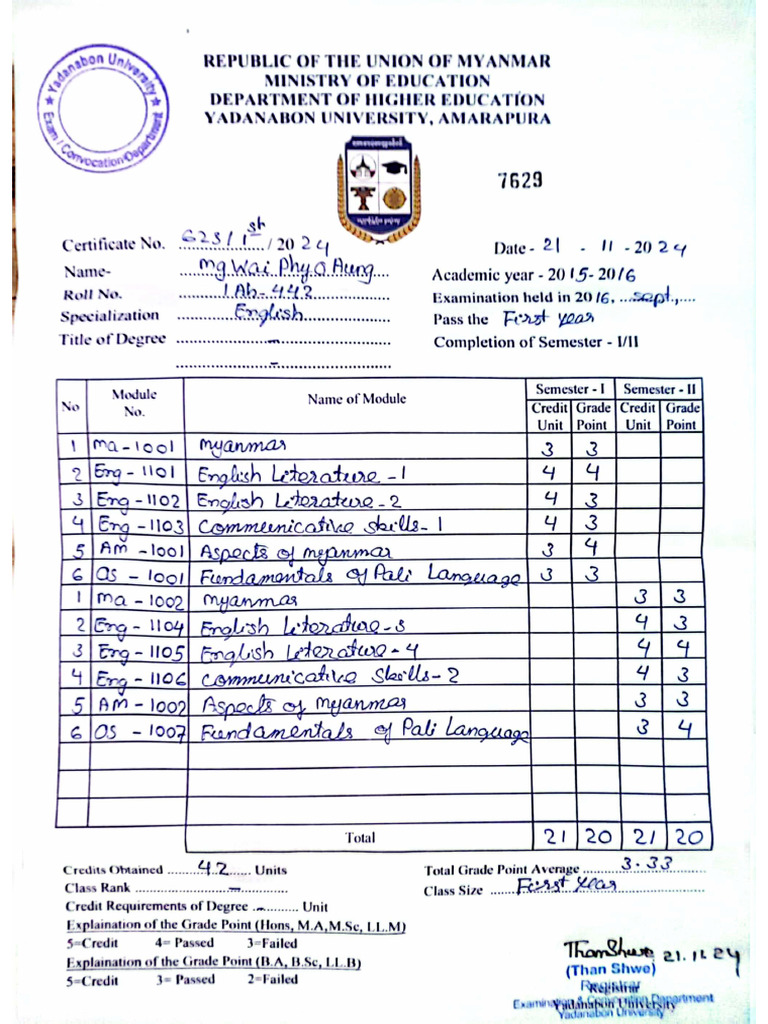 Yadanabon University
Exam / Convocation Department
REPUBLIC OF THE UNION OF MYANMAR
MINISTRY OF EDUCATION
DEPARTMENT OF HIGHER EDUCATION
YADANABON UNIVERSITY, AMARAPURA
7629
Certificate No. 623/1st / 2024 Date - 21 - 11 - 2024
Name- Mg Wai Phyo Aung Academic year - 2015-2016
Roll No. 1Ah-442 Examination held in 2016, sept.,
Specialization English Pass the First year
Title of Degree - Completion of Semester - I/II
-
No Module No. Name of Module Semester - I Semester - II
Credit Unit Grade Point Credit Unit Grade Point
1 Ma-1001 Myanmar 3 3
2 Eng-1101 English Literature-1 4 4
3 Eng-1102 English Literature-2 4 3
4 Eng-1103 Communicative Skills-1 4 3
5 AM-1001 Aspects of Myanmar 3 4
6 OS-1001 Fundamentals of Pali Language 3 3
1 Ma-1002 Myanmar 3 3
2 Eng-1104 English Literature-3 4 3
3 Eng-1105 English Literature-4 4 4
4 Eng-1106 Communicative Skills-2 4 3
5 AM-1002 Aspects of Myanmar 3 3
6 OS-1007 Fundamentals of Pali Language 3 4
Total 21 20 21 20
Credits Obtained 42 Units Total Grade Point Average 3.33
Class Rank - Class Size First Year
Credit Requirements of Degree - Unit
Explaination of the Grade Point (Hons, M.A,M.Sc, LL.M)
5=Credit 4= Passed 3=Failed
Explaination of the Grade Point (B.A, B.Sc, LL.B)
5=Credit 3= Passed 2=Failed
ThanShwe 21.11.24
(Than Shwe)
Registrar
Registrar
Examination & Convocation Department
Yadanabon University
Yadanabon University